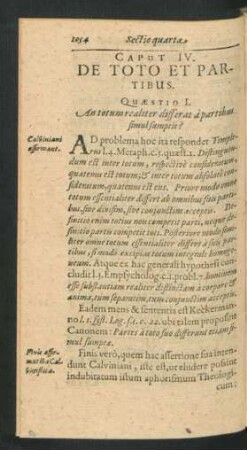 1054 Sectio quarta
CAPUT IV.
DE TOTO ET PAR-
TIBUS.
QUÆSTIO I.
An totum realiter differat à partibus
simul sumptis?
Calviniani
affirmant.
AD problema hoc ita respondet Timple-
rus l. 4. Metaph. c. 1. quæst. 2. Distinguen-
dum est inter totum, respectivè consideratum,
quatenus est totum; & inter totum absolutè con-
sideratum, quatenus est ens. Priore modo omne
totum essentialiter differt ab omnibus suis parti-
bus, sive divisim, sive conjunctim acceptis. De-
finitio enim totius non competit parti, neque
definitio partis competit toti. Posteriore modo simi-
liter omne totum essentialiter differt à suis par-
tibus, si modò excipias totum integrale homoge-
neum. Atque ex hac generali hypothesi con-
cludit l. 3. Empsycholog. c. 1. probl. 7. hominem
esse substantiam realiter distinctam à corpore &
anima, tum separatim, tum conjunctim acceptis.
Eadem mens & sententia est Keckerman-
no l. 1. Syst. Log. s. 1. c. 22. ubi talem proposuit
Canonem: Partes à toto suo differunt etiam si-
mul sumptæ.
Finis verò, quem hac assertione sua inten-
dunt Calviniani, iste est, ut eludere possint
indubitatum istum aphorismum Theologi-
cum: